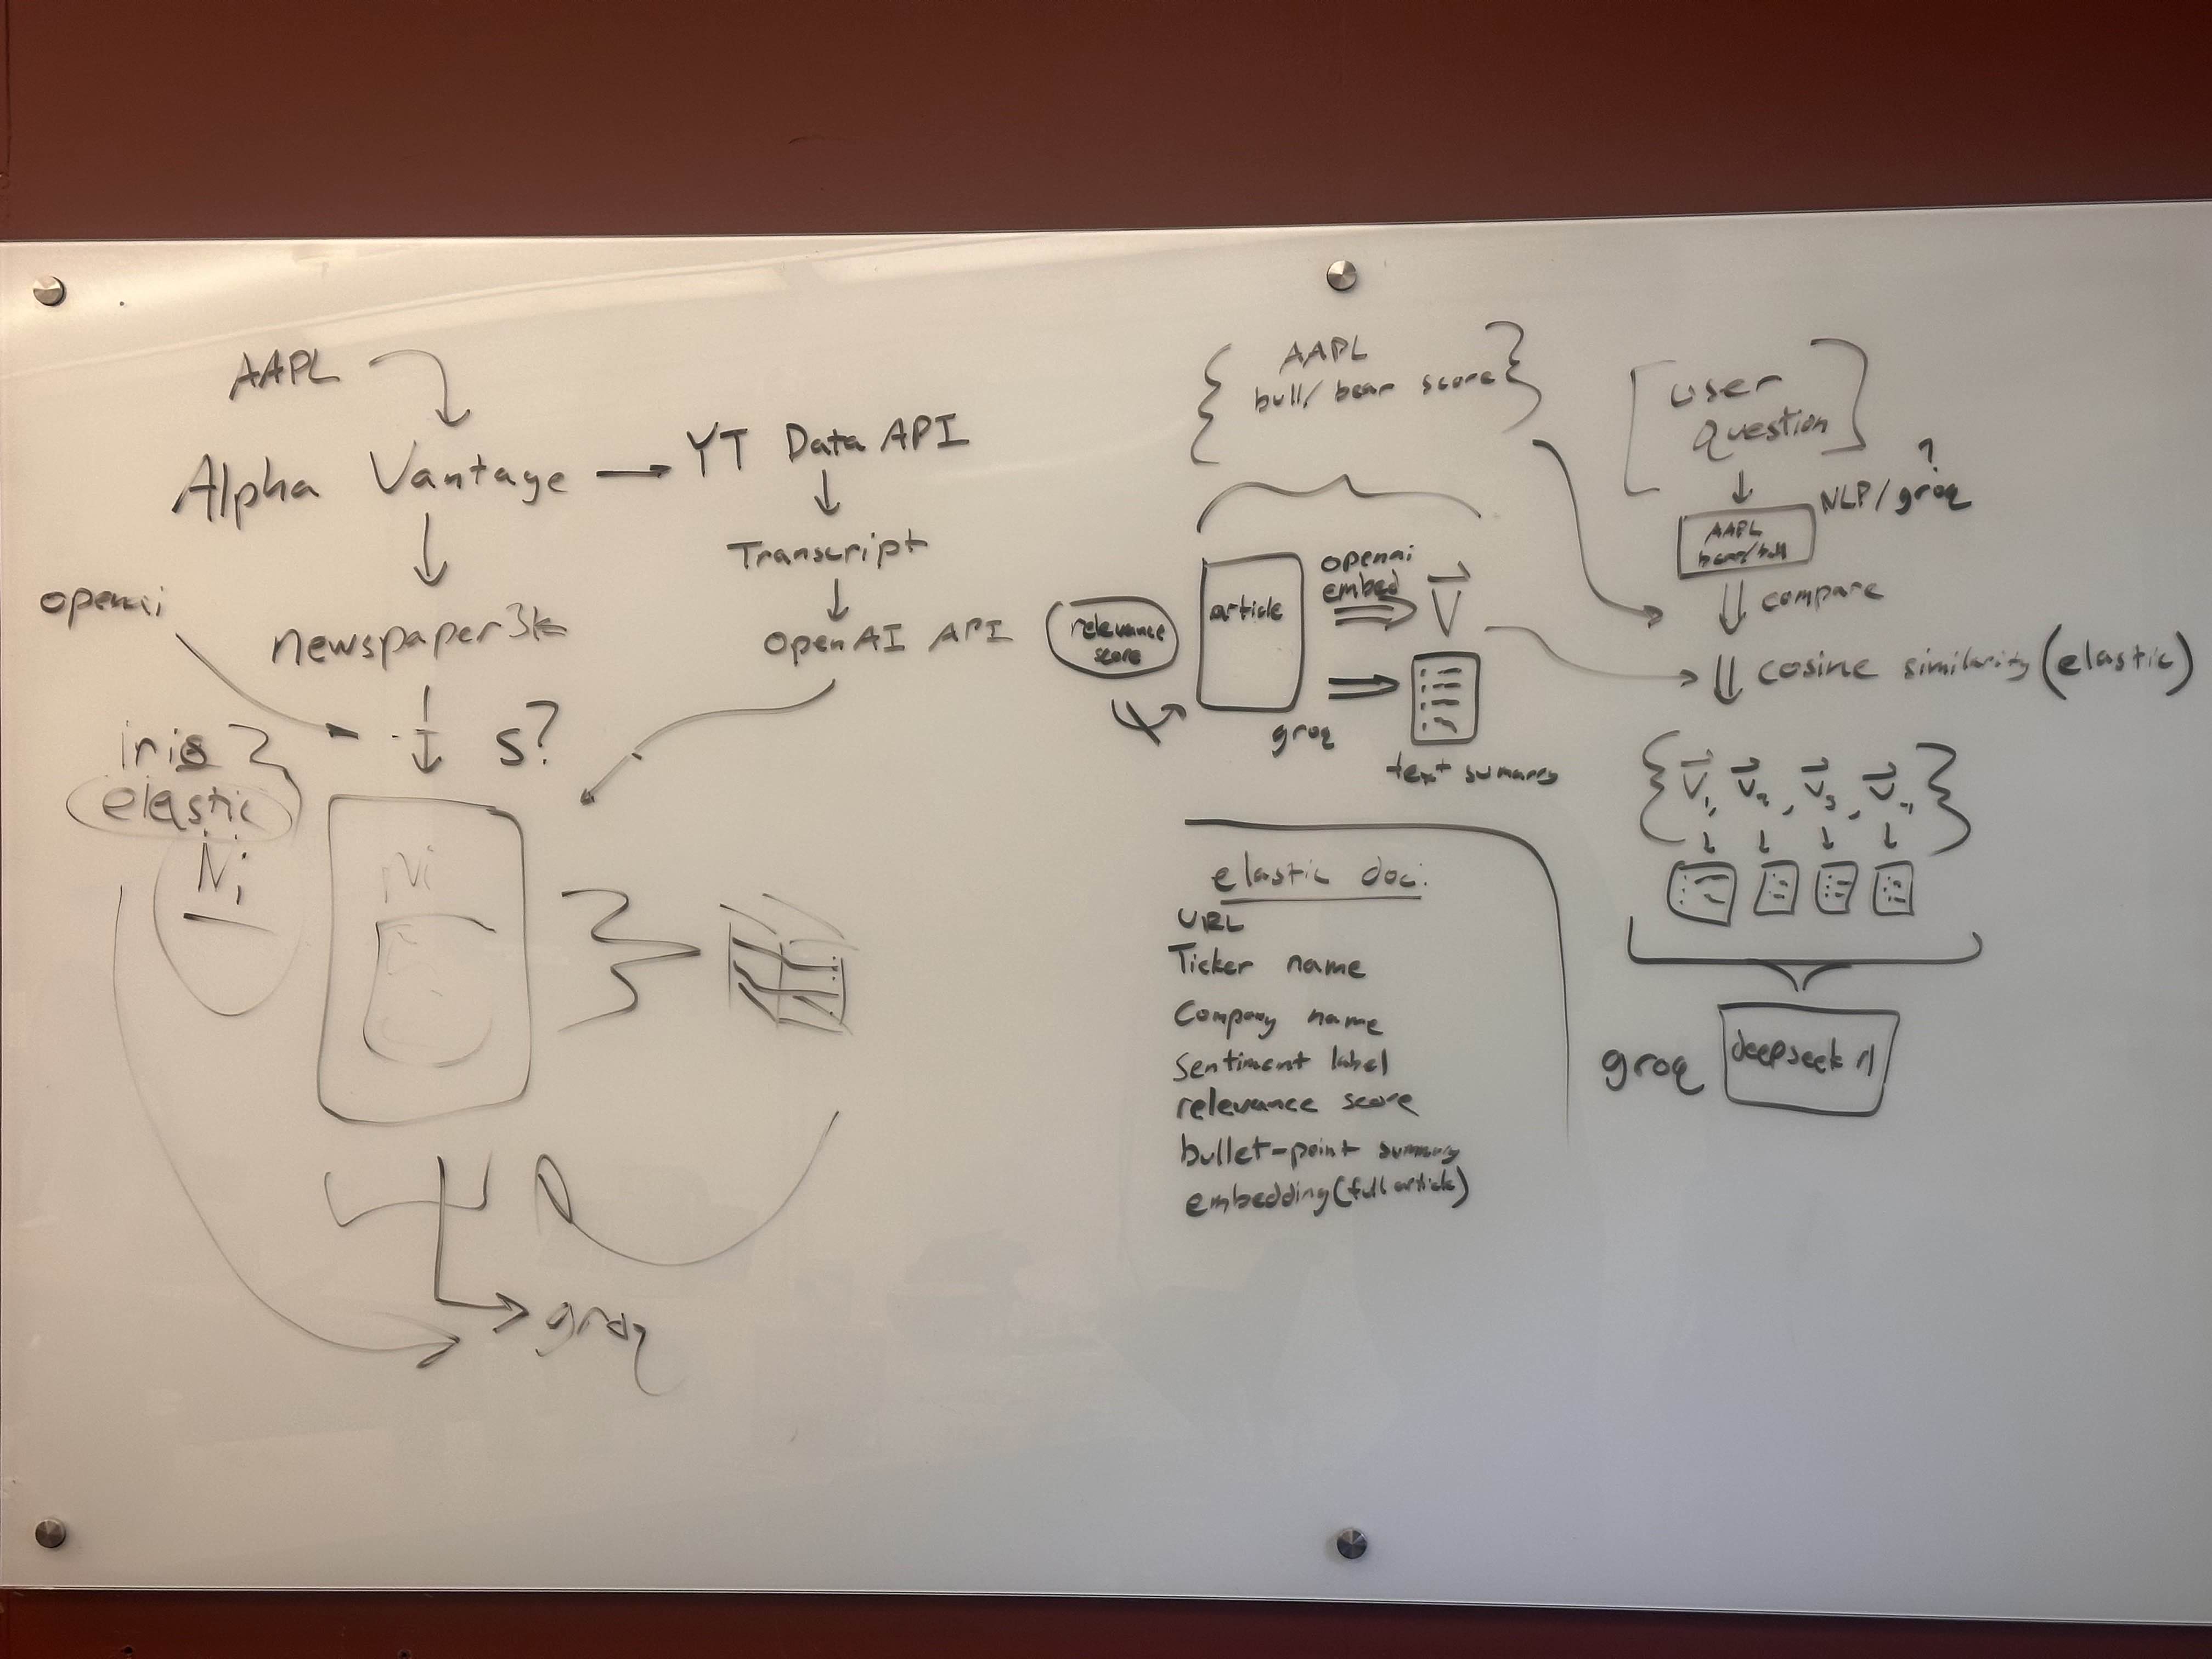 AAPL
Alpha Vantage
YT Data API
Transcript
OpenAI API
openai
newspaper3k
s?
iris
elastic
Ni
Ni
groq
AAPL
bull/bear score
openai
embed
V
article
relevance
score
groq
text summary
elastic doc:
URL
Ticker name
Company name
sentiment label
relevance score
bullet-point summary
embedding(full article)
user
question
?
NLP/groq
AAPL
bear/bull
compare
cosine similarity (elastic)
V1, V2, V3, V
groq
deepseek r1